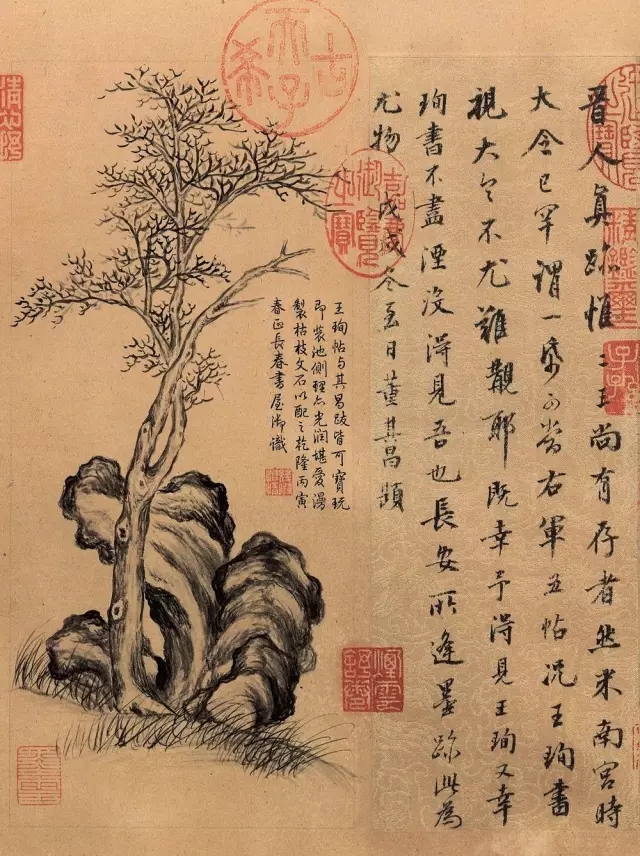 晉人真跡惟二王尚有存者然米南宮時
大令已罕謂一紙可當右軍五帖況王珣書
視大令不尤難覯耶既幸予得見王珣又幸
珣書不盡湮沒得見吾也長安所逢墨跡此為
尤物 戊戌冬至日董其昌題
王珣帖与其昌跋皆可寶玩
即裝池側理亦光潤堪愛漫
製枯枝文石以配之乾隆丙寅
春正長春書屋御識
古希天子
嘉慶御覽之寶